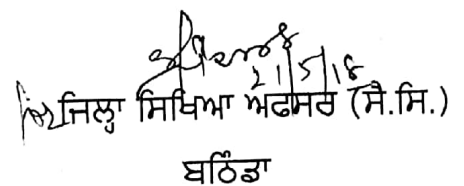 21/5/18
ਜਿਲ੍ਹਾ ਸਿਖਿਆ ਅਫਸਰ (ਸੈ.ਸਿ.)
ਬਠਿੰਡਾ